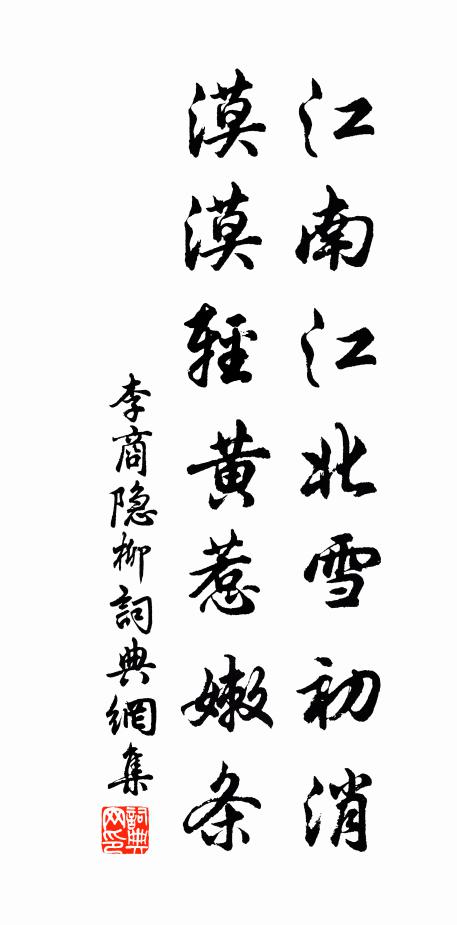 江南江北雪初消
漠漠輕黄惹嫩条
李商隐柳詞典網集
詞典網印